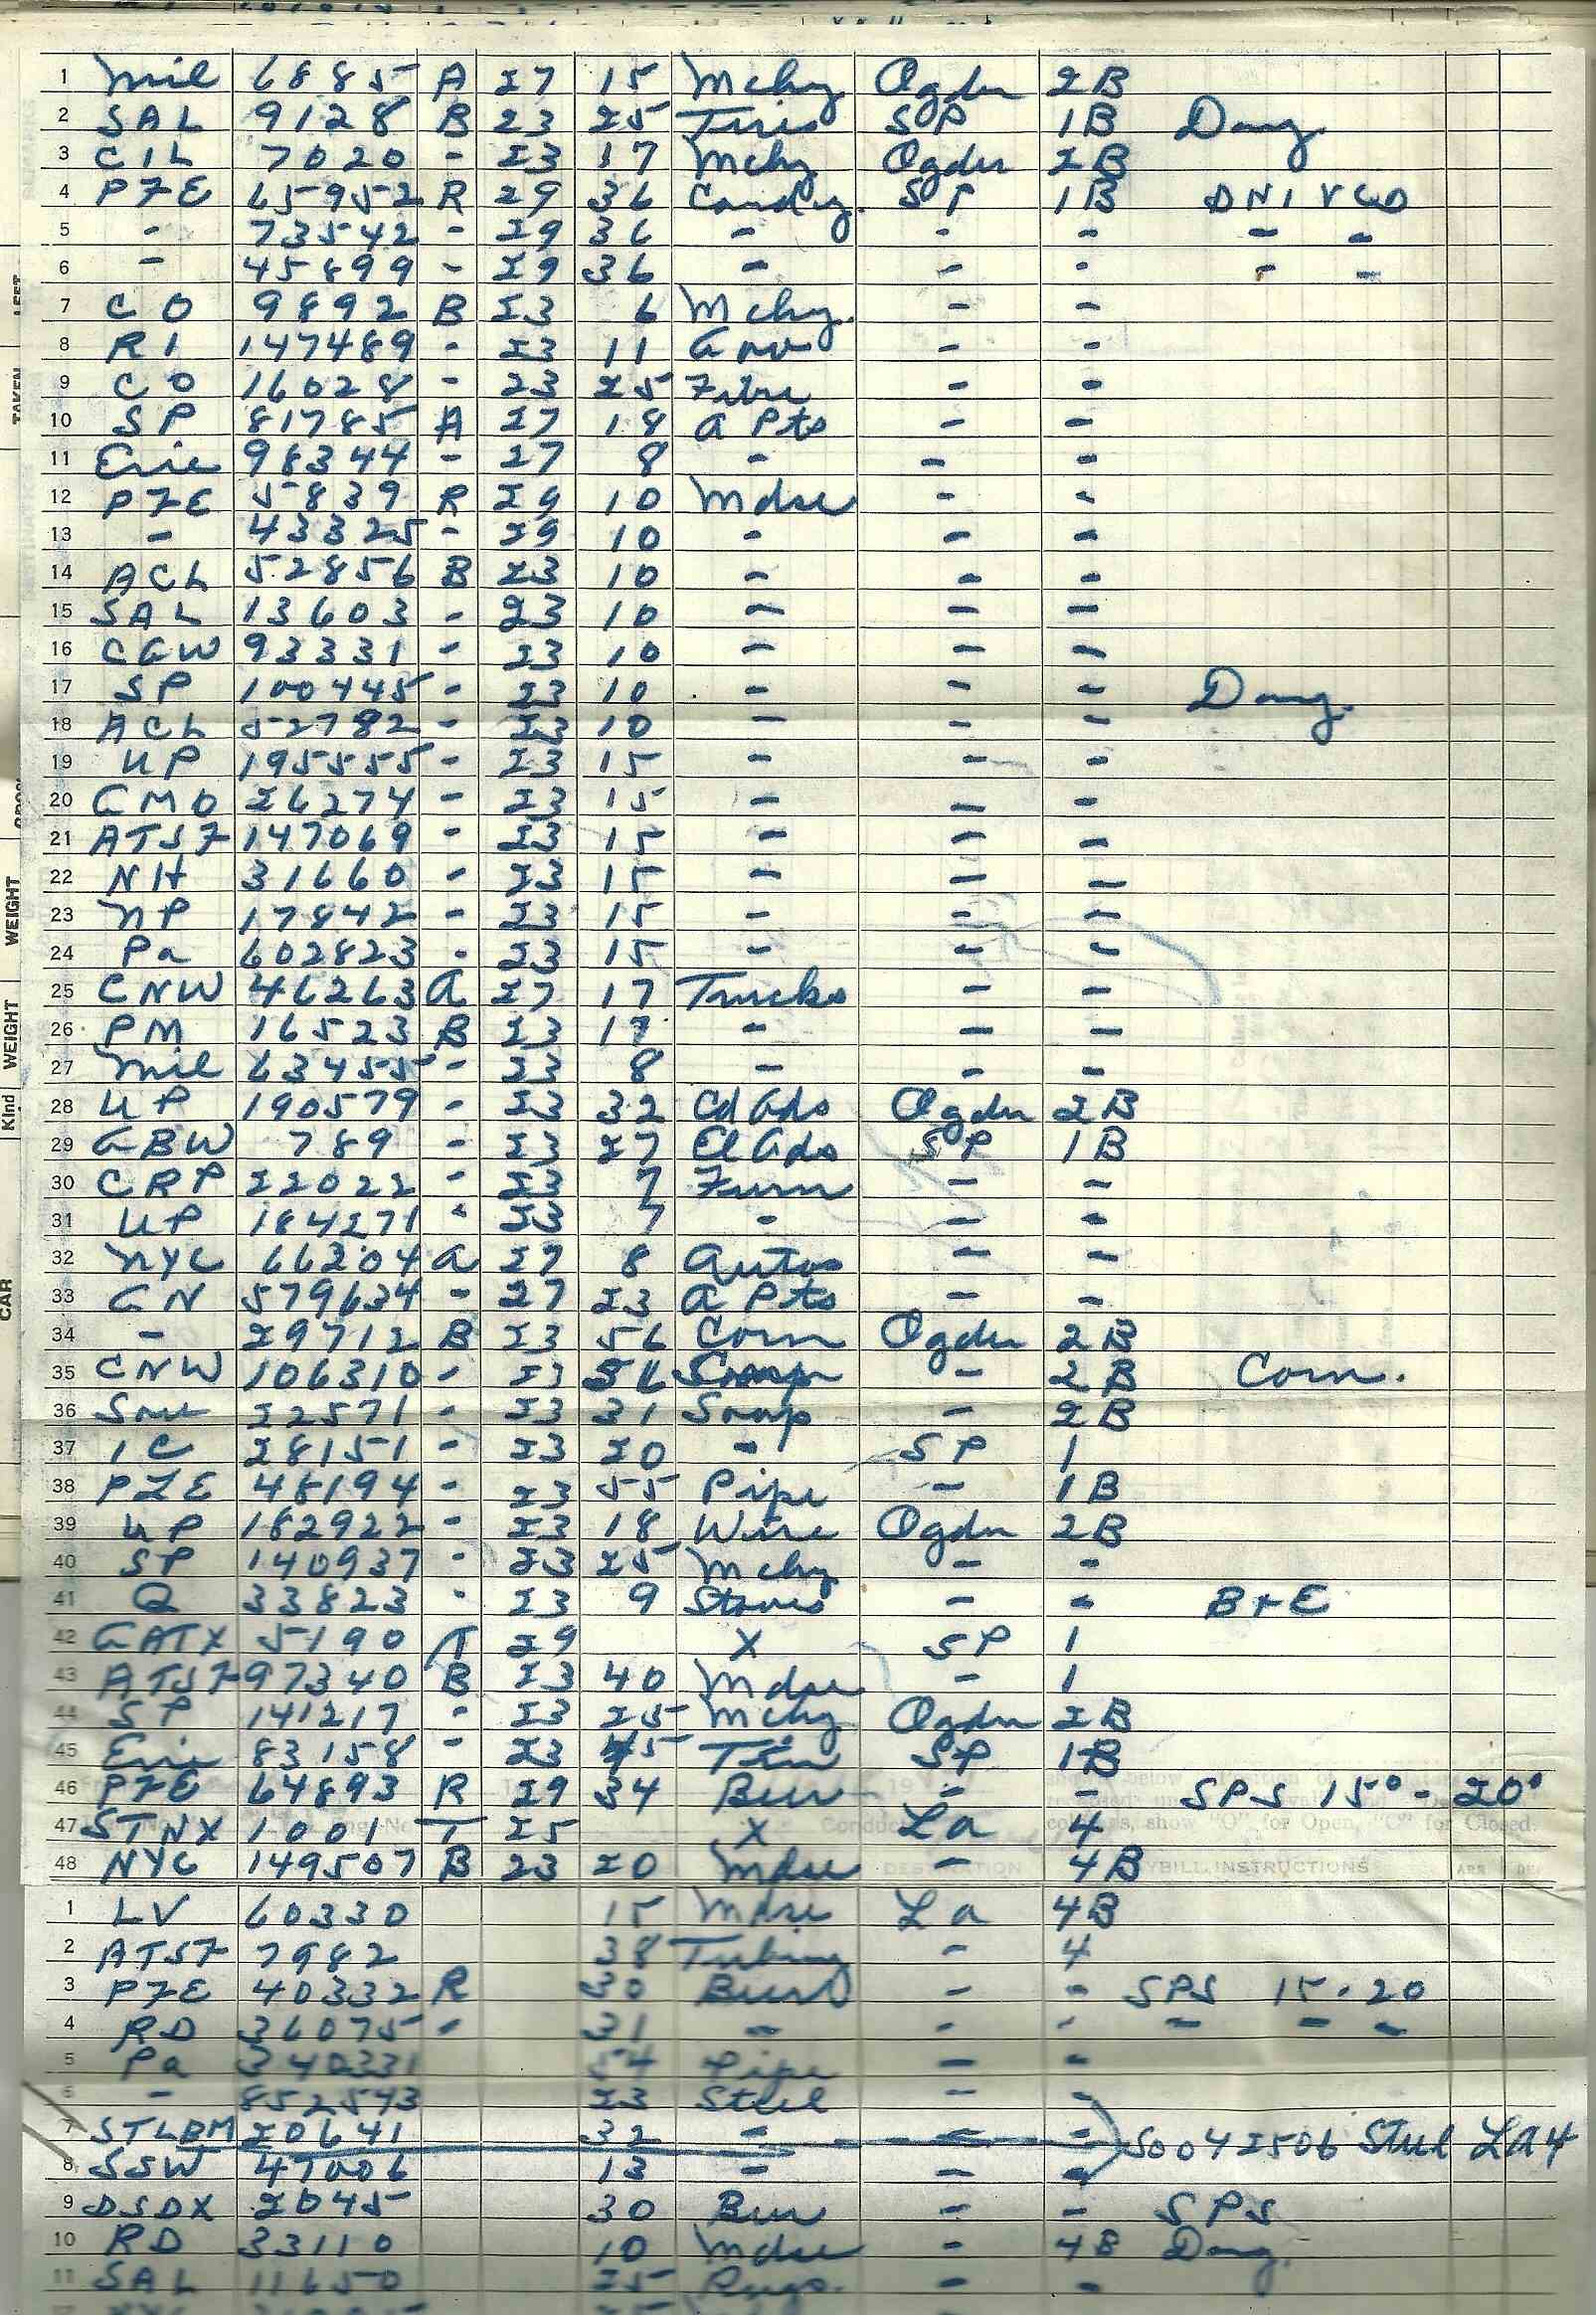 1 Mil 6885 A 27 15 Mchy Ogdn 2B
2 SAL 9128 B 23 25 Tires SP 1B Dang.
3 CIL 7020 - 23 17 Mchy Ogdn 2B
4 PFE 65952 R 29 36 Candy. SP 1B DNI VCO
5 - 73542 - 29 36 - - - - -
6 - 45899 - 29 36 - - - - -
7 CO 9892 B 23 6 Mchy. - -
8 RI 147489 - 23 11 - -
9 CO 16028 - 23 25 Fibre - -
10 SP 81785 A 27 18 A Pts - -
11 Erie 98344 - 27 8 - - -
12 PFE 5839 R 29 10 Mdse - -
13 - 43325 - 29 10 - - -
14 ACL 52856 B 23 10 - - -
15 SAL 13603 - 23 10 - - -
16 CGW 93331 - 23 10 - - -
17 SP 100445 - 23 10 - - - Dang.
18 ACL 52782 - 23 10 - - -
19 UP 195555 - 23 15 - - -
20 GMO 26274 - 23 15 - - -
21 ATSF 147069 - 23 15 - - -
22 NH 31660 - 23 15 - - -
23 NP 17842 - 23 15 - - -
24 Pa 602823 - 23 15 - - -
25 CNW 46263 A 27 17 Trucks - -
26 PM 16523 B 23 17 - - -
27 Mil 63455 - 23 8 - - -
28 UP 190579 - 23 32 Cd Gds Ogdn 2B
29 GBW 789 - 23 27 El Gds SP 1B
30 CRP 22022 - 23 7 Furn - -
31 UP 184271 - 23 7 - - -
32 NYC 66204 A 27 8 Autos - -
33 GN 579634 - 27 23 A Pts - -
34 - 29712 B 23 56 Corn Ogdn 2B
35 CNW 106310 - 23 56 - 2B Corn.
36 Soo 22571 - 23 31 Soap - 2B
37 IC 28151 - 23 20 - SP 1
38 PLE 48194 - 23 55 Pipe - 1B
39 UP 182922 - 23 18 Wire Ogdn 2B
40 SP 140937 - 23 25 Mchy - -
41 Q 33823 - 23 9 Stoves - - B+E
42 GATX 5190 T 29 X SP 1
43 ATSF 97340 B 23 40 Mdse - 1
44 SP 141217 - 23 25 Mchy Ogdn 2B
45 Erie 83158 - 23 45 Tin SP 1B
46 PFE 64893 R 29 34 Beer - - SPS 15° - 20°
47 STNX 1001 T 25 X La 4
48 NYC 149507 B 23 20 Mdse - 4B
1 LV 60330 15 Mdse La 4B
2 ATSF 7982 38 Tubing - 4
3 PFE 40332 R 30 Beer - - SPS 15-20
4 RD 36075 - 31 - - - - - -
5 Pa 340331 54 Pipe - -
6 - 852543 23 Steel - -
7 STLBM 20641 32 - - - Soo 42506 Steel LA4
8 SSW 47006 13 - - -
9 DSDX 2045 30 Beer - - SPS
10 RD 33110 10 Mdse - 4B Dang.
11 SAL 11650 25 Rugs. - -
TAKEN
LEFT
WEIGHT
WEIGHT
Kind
CAR
DESTINATION
WAYBILL INSTRUCTIONS